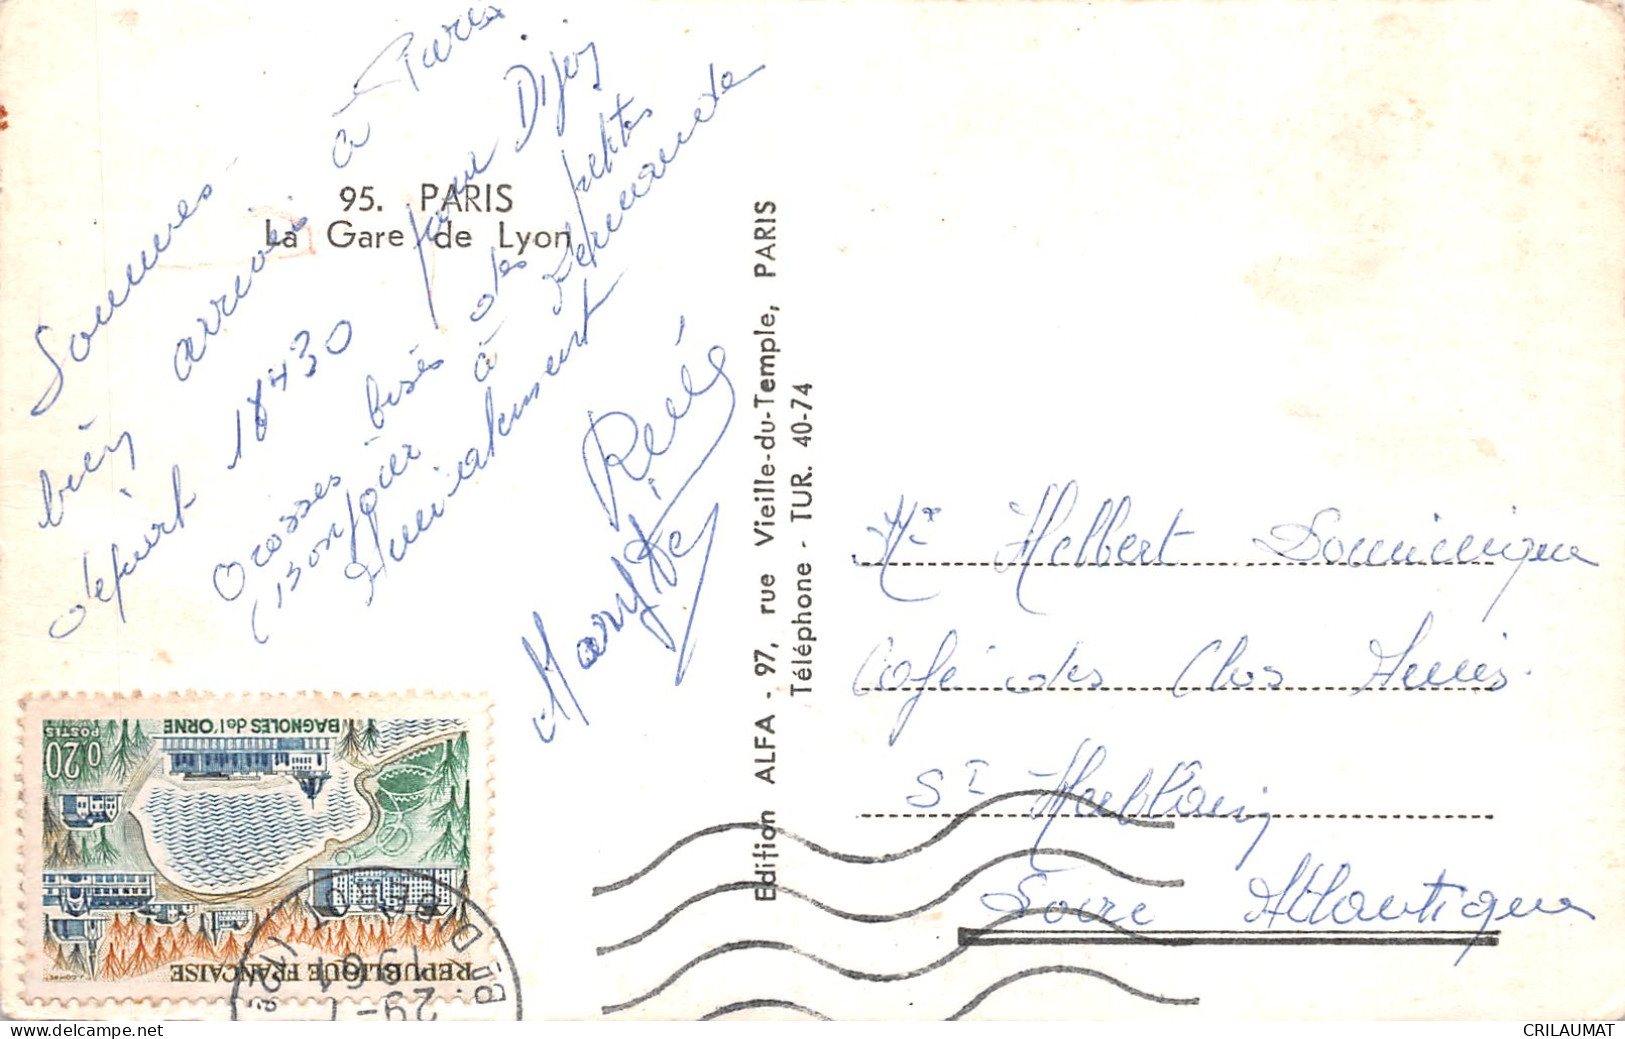 Sommes
bien arrivés à Paris
départ 18H30 pour Dijon
Grosses bises des petites
Bonjour à Fernande
Amicalement
René
Maryse
95. PARIS
La Gare de Lyon
Edition ALFA - 97, rue Vieille-du-Temple, PARIS
Téléphone - TUR. 40-74
Helbert Dominique
Café des Clos Amis
St Herblain
Loire Atlantique
0,20
POSTES
BAGNOLES de l'ORNE
REPUBLIQUE FRANÇAISE
29-
1961
DIJON
CRILAUMAT